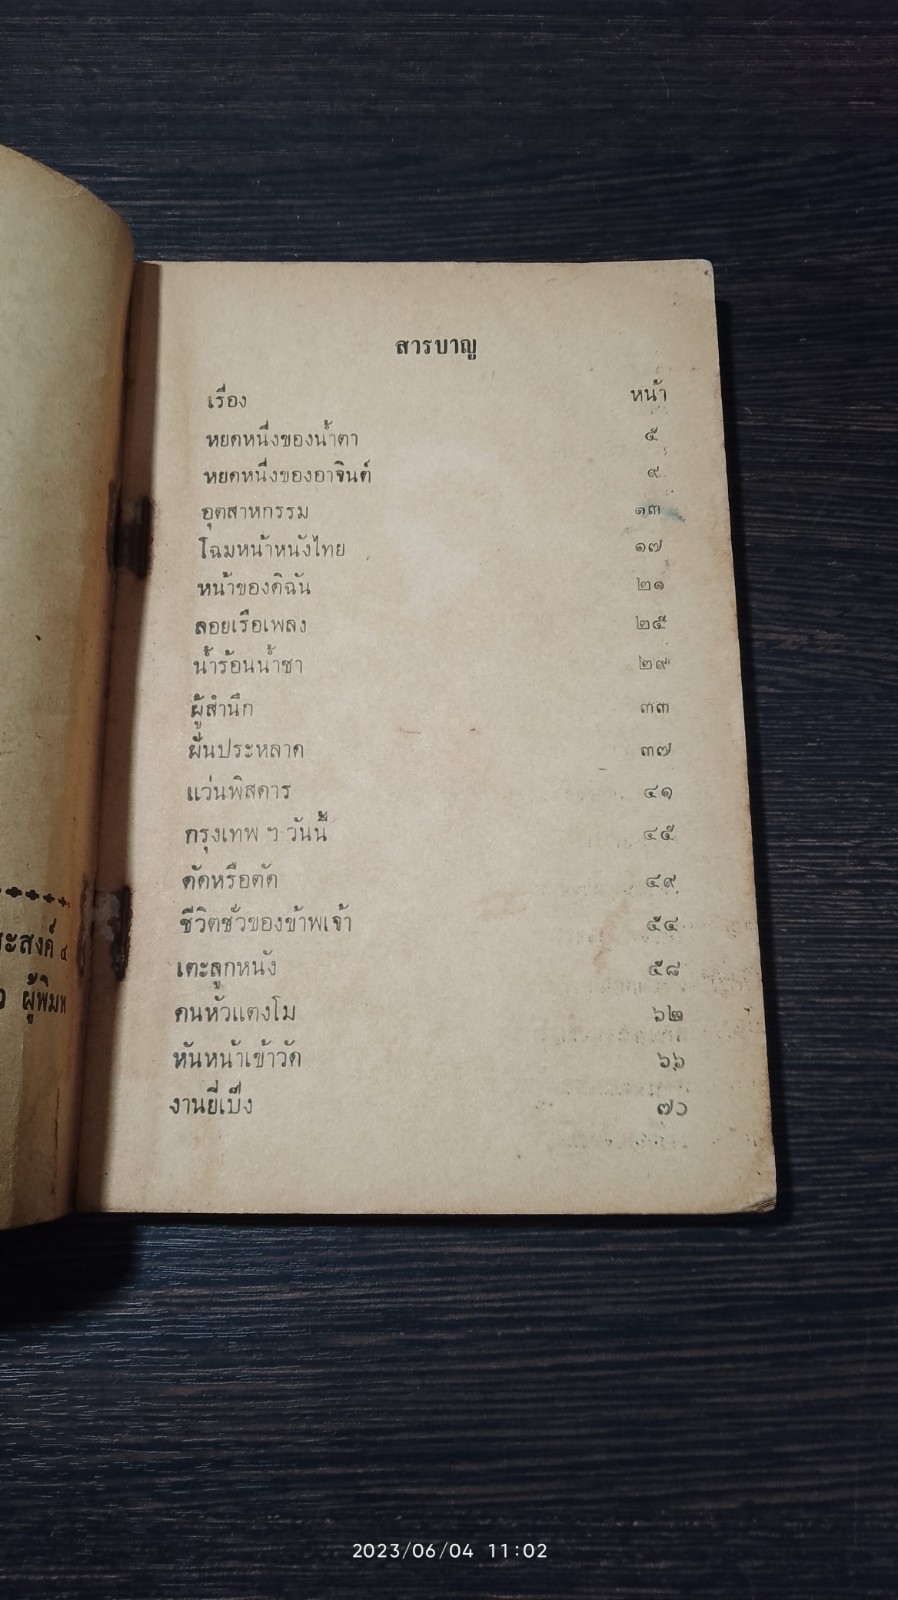 สารบาญ
เรื่อง หน้า
หยดหนึ่งของน้ำตา ๕
หยดหนึ่งของอาจินต์ ๙
อุตสาหกรรม ๑๓
โฉมหน้าหนังไทย ๑๗
หน้าของดิฉัน ๒๑
ลอยเรือเพลง ๒๕
น้ำร้อนน้ำชา ๒๙
ผู้สำนึก ๓๓
ผันประหลาด ๓๗
แว่นพิสดาร ๔๑
กรุงเทพ ฯ วันนี้ ๔๕
ดัดหรือตัด ๔๙
ชีวิตชั่วของข้าพเจ้า ๕๔
เตะลูกหนัง ๕๘
คนหัวแตงโม ๖๒
หันหน้าเข้าวัด ๖๖
งานยี่เป็ง ๗๐
ระสงค์ ๔
ว ผู้พิมพ
2023/06/04 11:02